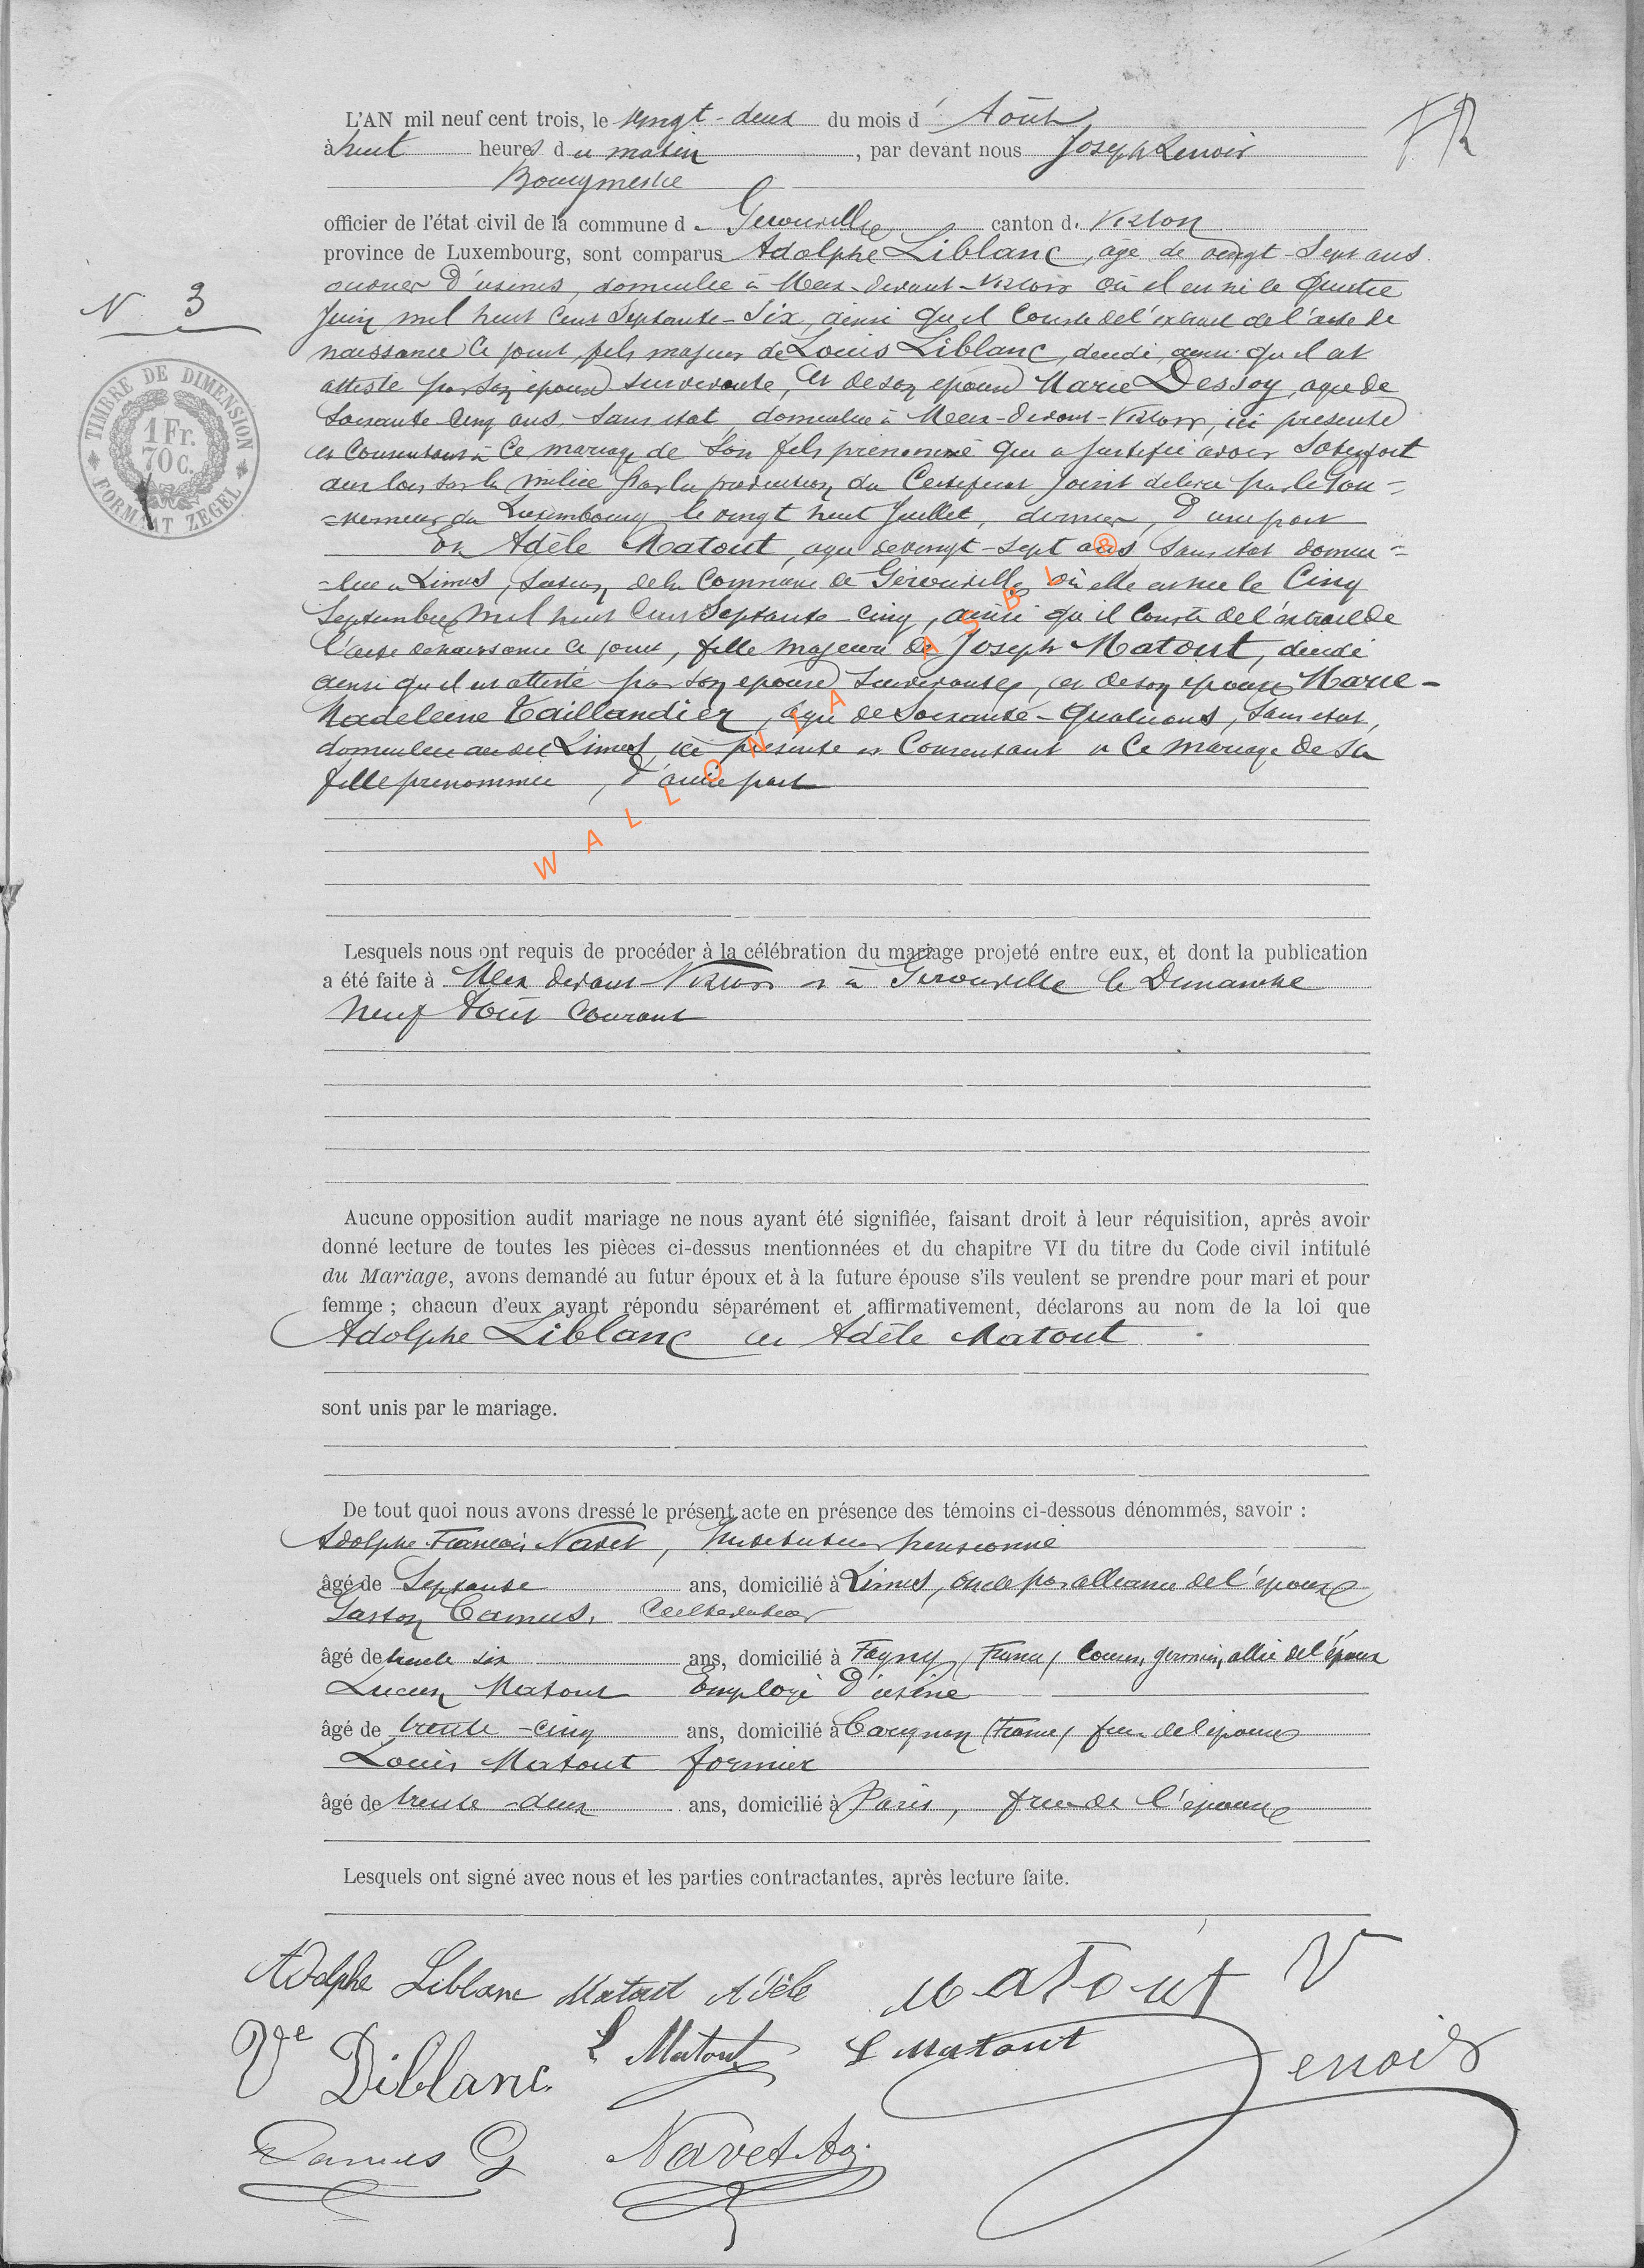 L'AN mil neuf cent trois, le vingt-deux du mois d' Aôut
FR
à huit heures du matin, par devant nous Joseph Lenoir
Bourgmestre
officier de l'état civil de la commune de Gerouville canton de Virton
province de Luxembourg, sont comparus Adolphe Liblanc, âgé de vingt-sept ans
ouvrier d'usines, domicilié à Meix-devant-Virton où il est né le quatre
N 3
Juin mil huit cent septante-six, ainsi qu'il conste de l'extrait de l'acte de
naissance ci joint, fils majeur de Louis Liblanc, décédé ainsi qu'il est
attesté par son épouse survivante, et de son épouse Marie Dessoy, agée de
soixante cinq ans, sans état, domiciliée à Meix-devant-Virton, ici présente
et consentant à ce mariage de son fils prénommé qui a justifié avoir satisfait
aux lois sur la milice par la production du certificat joint délivré par le Gou=
=verneur du Luxembourg le vingt huit Juillet, dernier, d'une part
Et Adèle Matout, agée de vingt-sept ans sans état domici=
=liée à Limes, section de la commune de Gérouville où elle est née le cinq
Septembre mil huit cent septante-cinq, ainsi qu'il conste de l'extrait de
l'acte de naissance ci joint, fille majeure de Joseph Matout, décédé
ainsi qu'il est attesté par son épouse survivante, et de son épouse Marie-
Madeleine Taillandier, agée de soixante-quatre ans, sans état,
domiciliée au dit Limes, ici présente et consentant à ce mariage de sa
fille prénommée, d'autre part
WALLONIA ASBL ®
TIMBRE DE DIMENSION
1 Fr. 70 C.
FORMAAT ZEGEL
Lesquels nous ont requis de procéder à la célébration du mariage projeté entre eux, et dont la publication
a été faite à Meix devant Virton et à Gerouville le Dimanche
neuf Aôut courant
Aucune opposition audit mariage ne nous ayant été signifiée, faisant droit à leur réquisition, après avoir
donné lecture de toutes les pièces ci-dessus mentionnées et du chapitre VI du titre du Code civil intitulé
du Mariage, avons demandé au futur époux et à la future épouse s'ils veulent se prendre pour mari et pour
femme ; chacun d'eux ayant répondu séparément et affirmativement, déclarons au nom de la loi que
Adolphe Liblanc et Adèle Matout
sont unis par le mariage.
De tout quoi nous avons dressé le présent acte en présence des témoins ci-dessous dénommés, savoir :
Adolphe François Navet, Instituteur pensionné
âgé de Septante ans, domicilié à Limes, oncle par alliance de l'épouse
Gaston Camus, Cultivateur
âgé de trente six ans, domicilié à Fagny (France) cousin germain, allié de l'épouse
Lucien Matout Employé d'usine
âgé de trente-cinq ans, domicilié à Carignan (France) frère de l'épouse
Louis Matout formier
âgé de trente-deux ans, domicilié à Paris, frère de l'épouse
Lesquels ont signé avec nous et les parties contractantes, après lecture faite.
Adolphe Liblanc Matout Adèle Matout V
Vve Diblanc. L Matout L Matout Lenoir
Camus G Navet Ad.